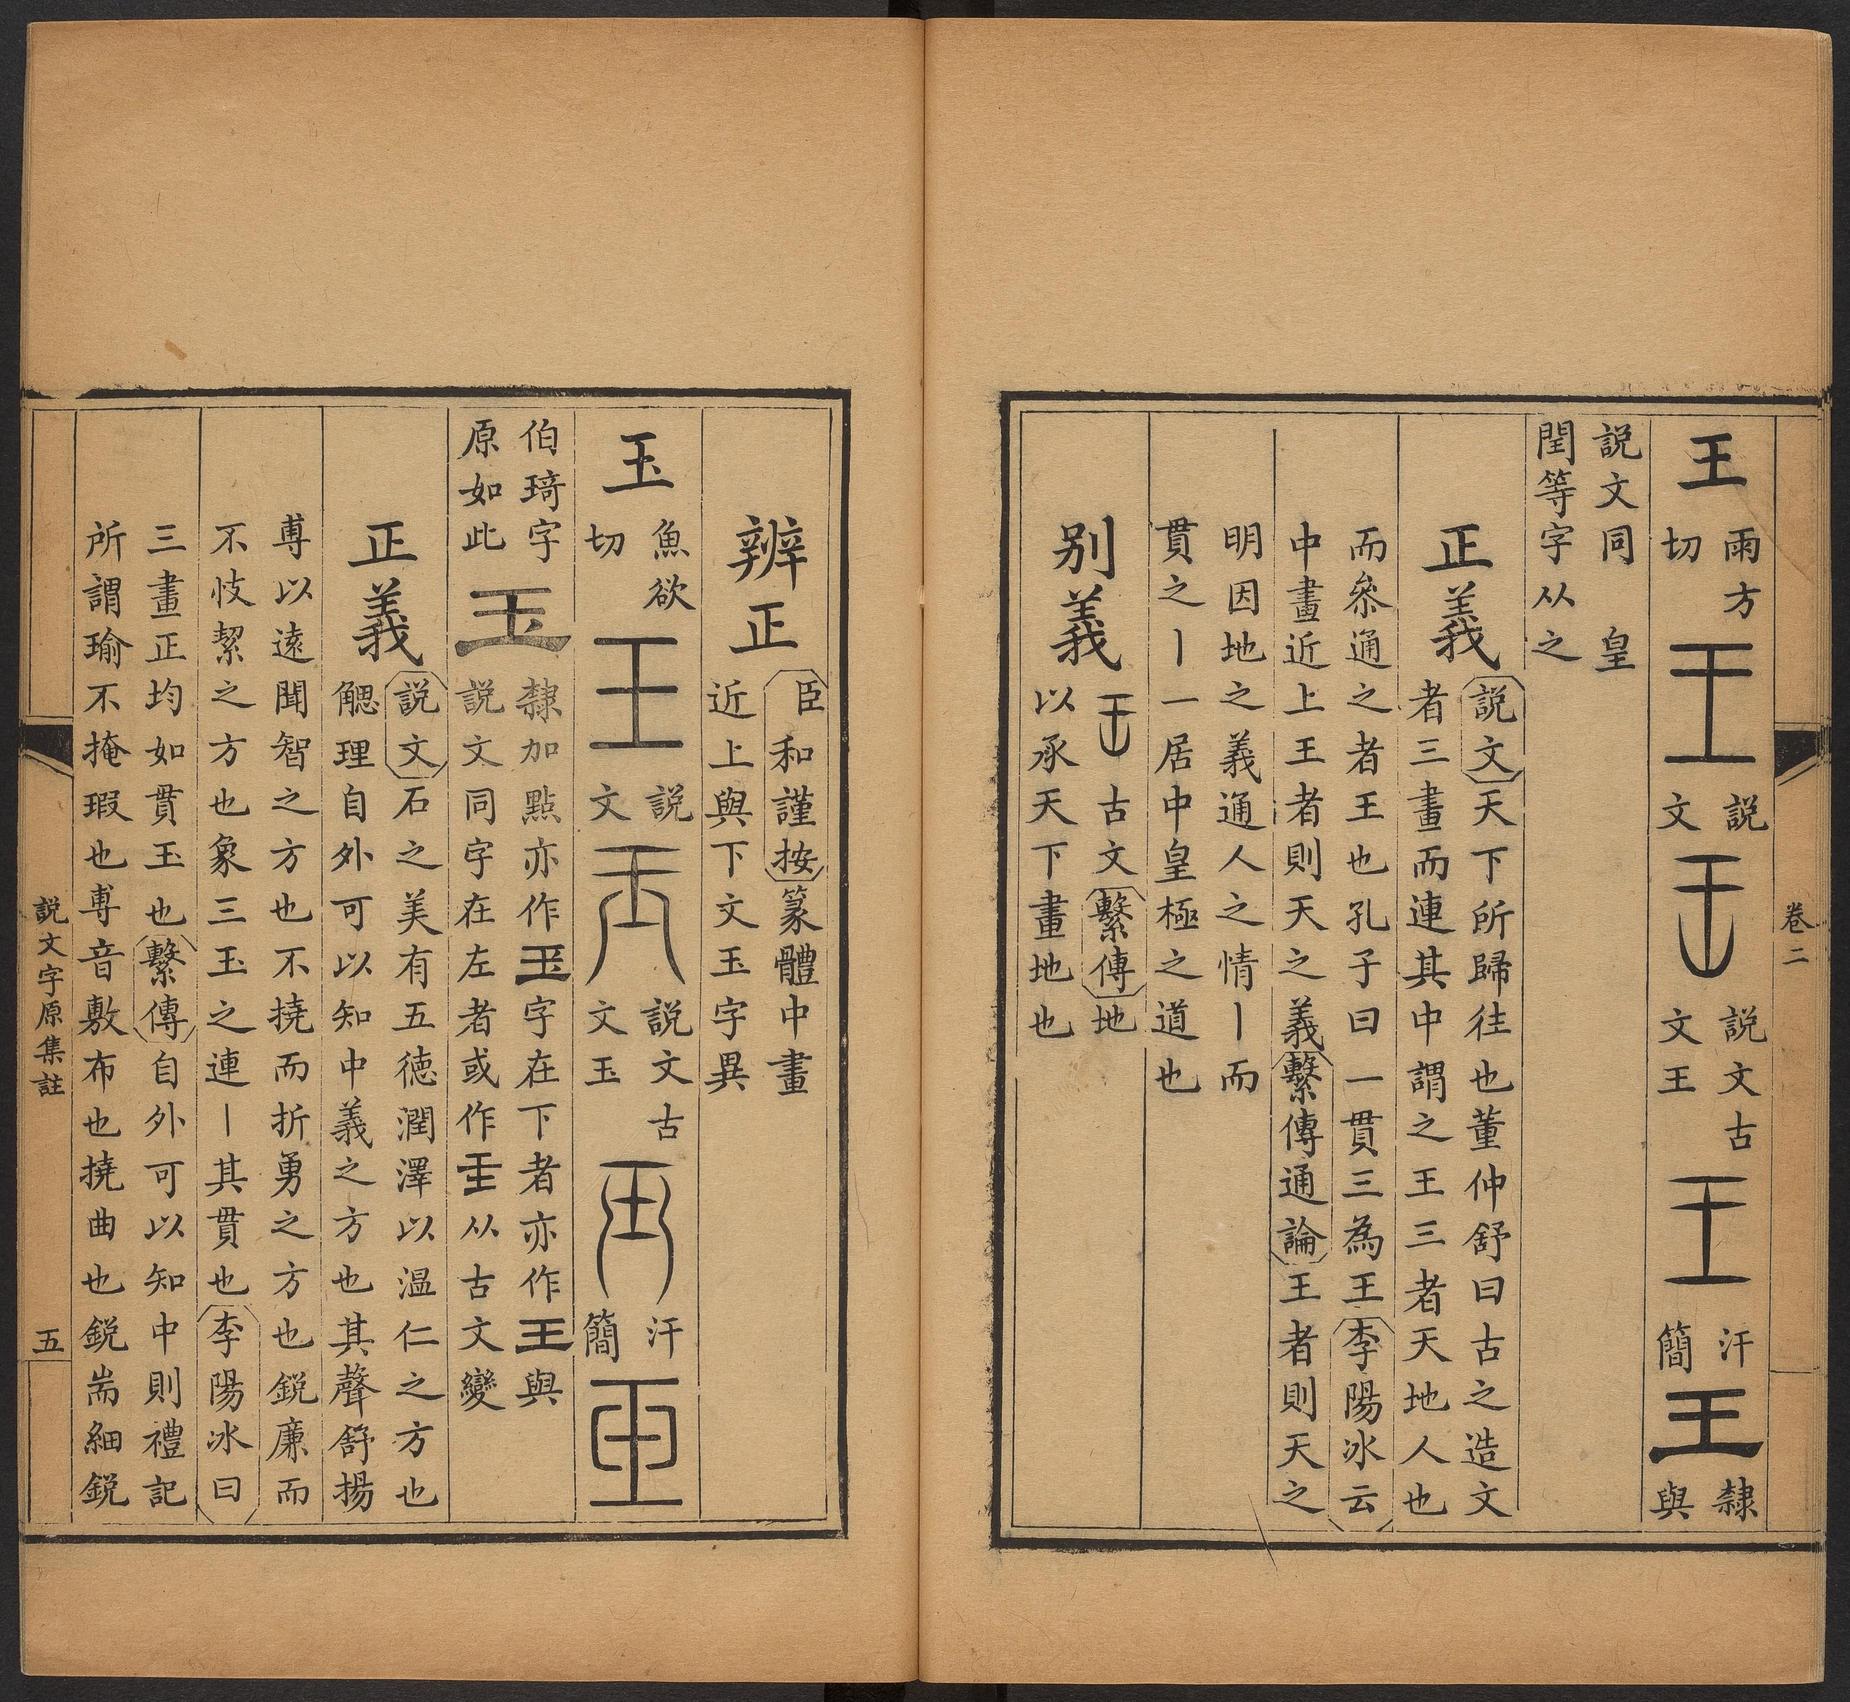 卷二
王
雨方
切
説
文
説文古
文王
汗
簡
王
隸
與
説文同 皇
閏等字从之
正義
説文天下所歸往也董仲舒曰古之造文
者三畫而連其中謂之王三者天地人也
而叅通之者王也孔子曰一貫三為王李陽冰云
中畫近上王者則天之義繫傳通論王者則天之
明因地之義通人之情丨而
貫之丨一居中皇極之道也
别義
古文繫傳地
以承天下畫地也
辨正
臣和謹按篆體中畫
近上與下文玉字異
玉
魚欲
切
説
文
説文古
文玉
汗
簡
伯琦字
原如此
玉
隸加點亦作玉字在下者亦作王與
説文同字在左者或作𤣩从古文變
正義
説文石之美有五德潤澤以温仁之方也
䚡理自外可以知中義之方也其聲舒揚
尃以遠聞智之方也不撓而折勇之方也鋭廉而
不忮絜之方也象三玉之連丨其貫也李陽冰曰
三畫正均如貫玉也繫傳自外可以知中則禮記
所謂瑜不掩瑕也尃音敷布也撓曲也鋭耑細鋭
説文字原集註
五